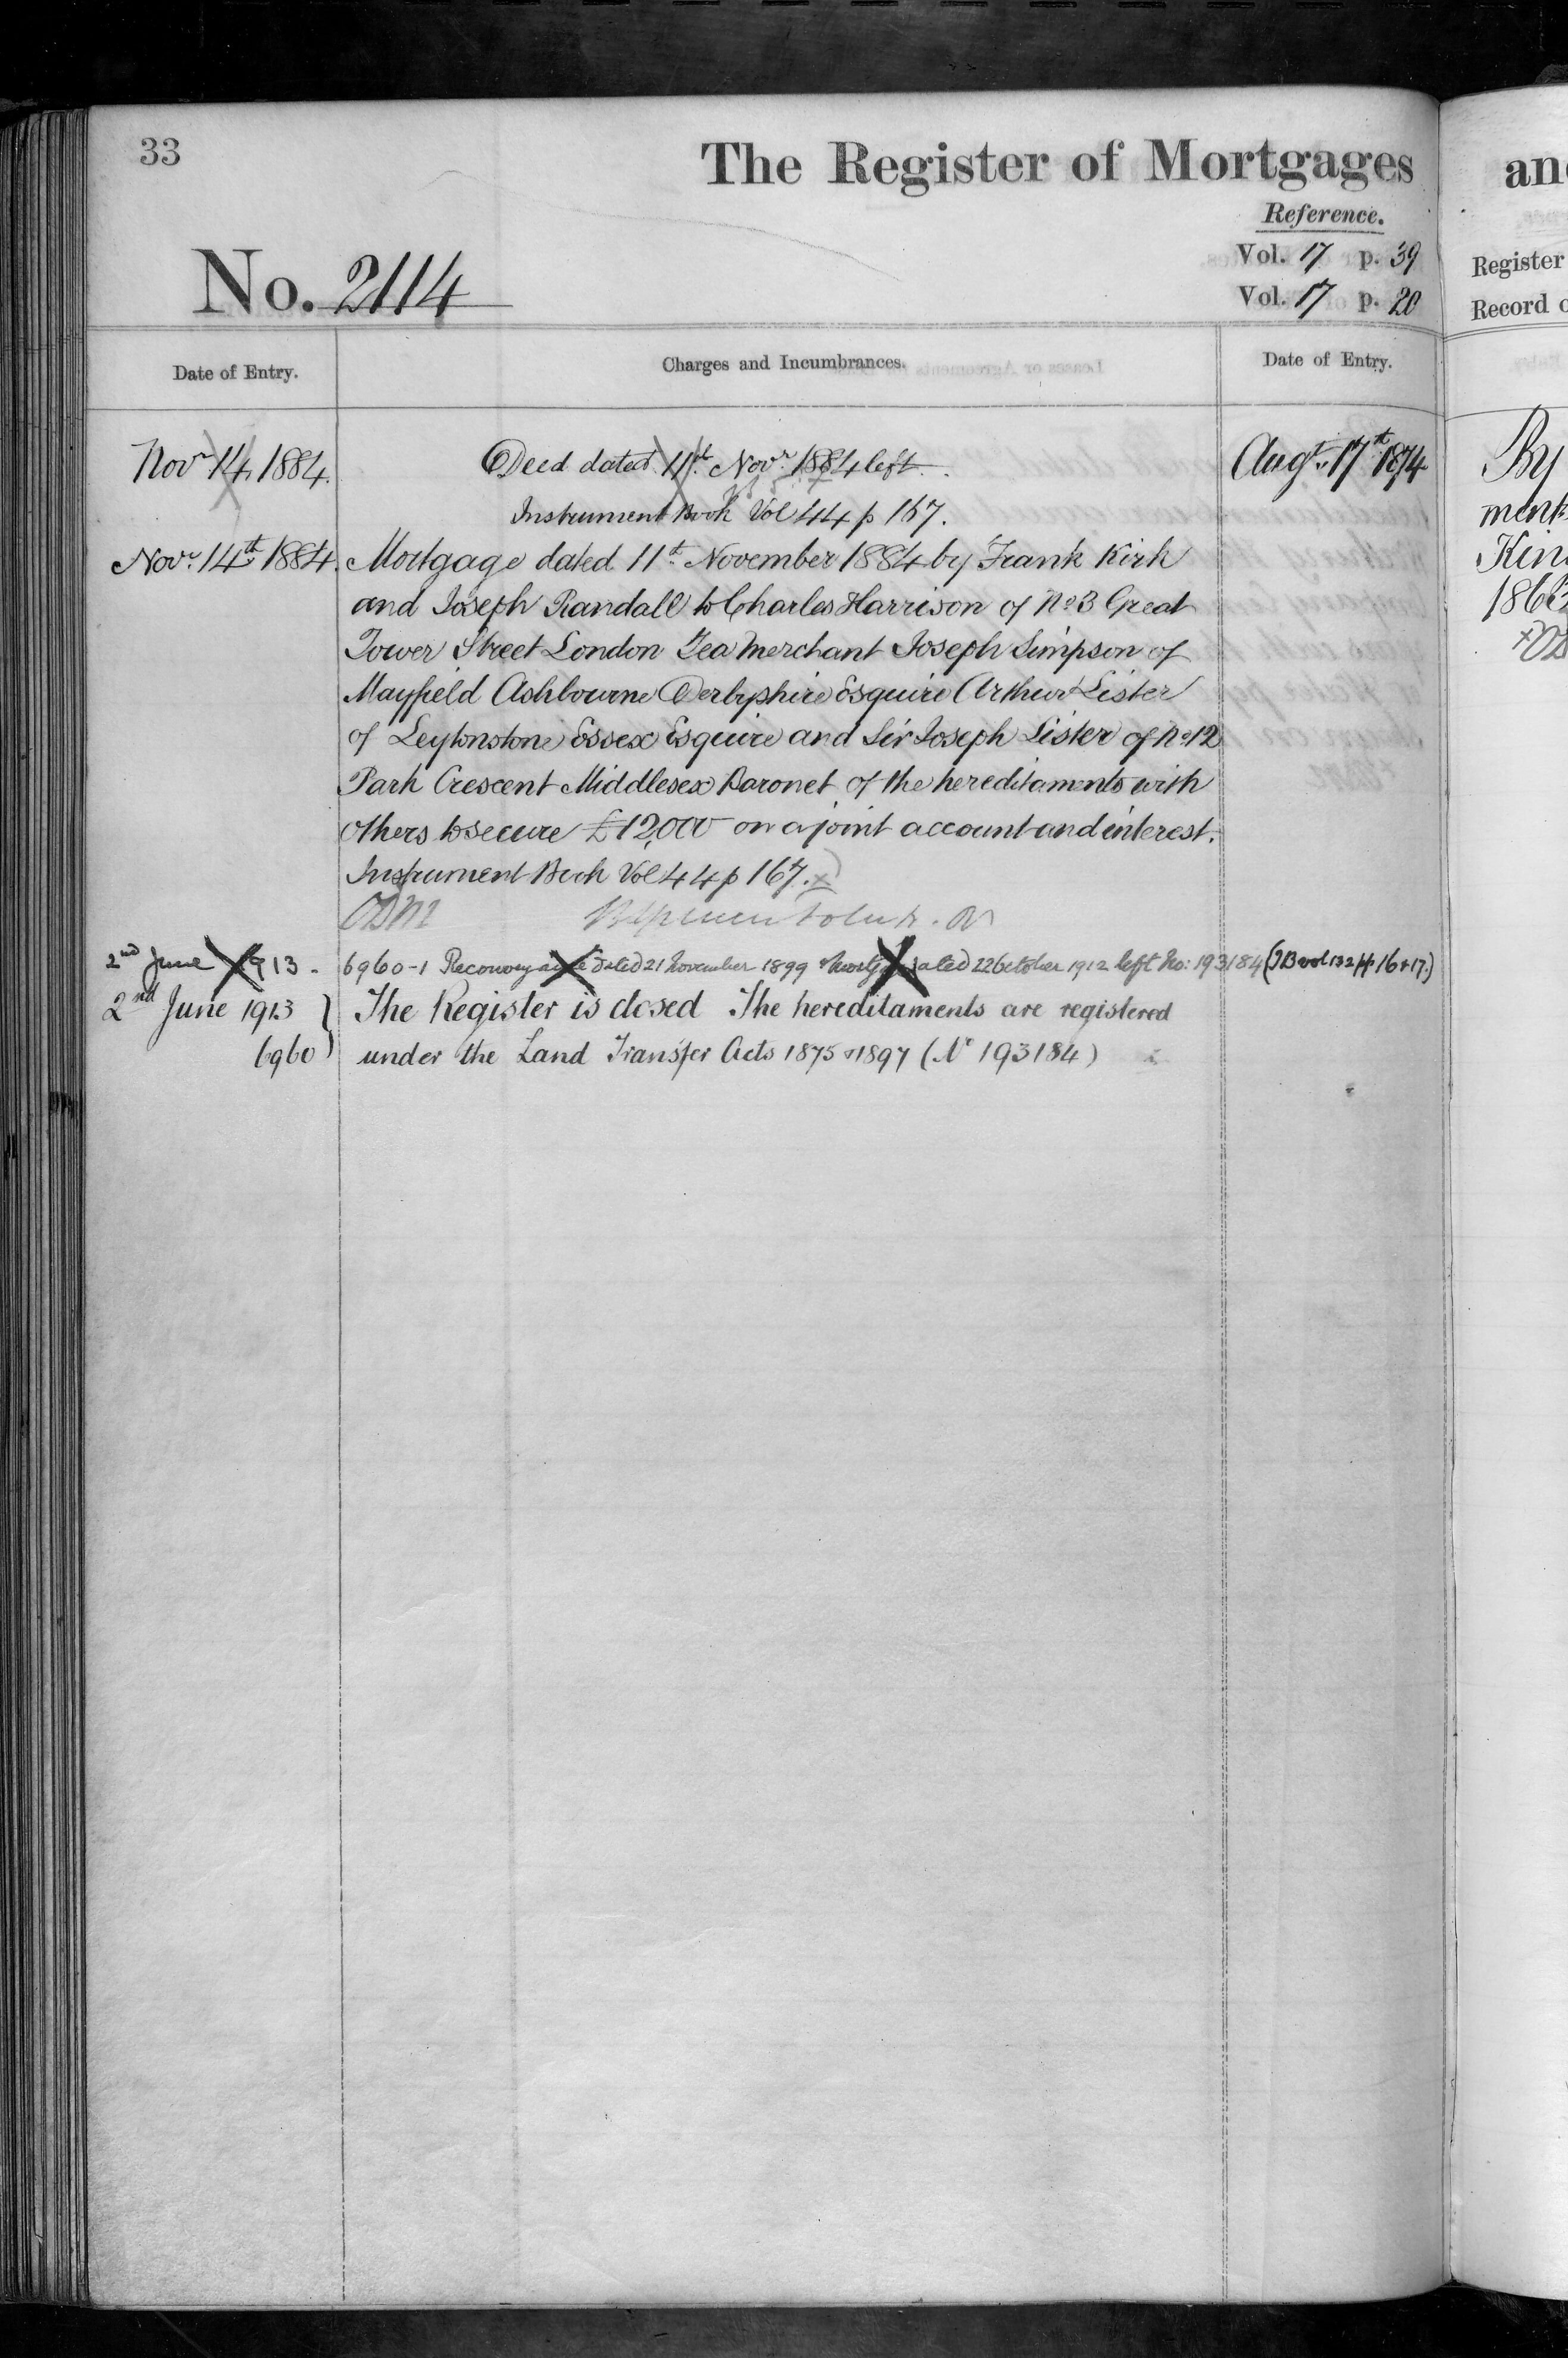 33
The Register of Mortgages
Reference.
No. 2114
Vol. 17 p. 39
Vol. 17 p. 20
Date of Entry.
Charges and Incumbrances.
Date of Entry.
Novr 14, 1884.
Deed dated 11th Novr 1884 left.
Augt 17th 1874
Instrument Book Vol 44 p 167.
Novr 14th 1884.
Mortgage dated 11th November 1884 by Frank Kirk
and Joseph Randall to Charles Harrison of No 3 Great
Tower Street London Tea Merchant Joseph Simpson of
Mayfield Ashbourne Derbyshire Esquire Arthur Lister
of Leytonstone Essex Esquire and Sir Joseph Lister of No 12
Park Crescent Middlesex Baronet of the hereditaments with
others to secure £12,000 on a joint account and interest.
Instrument Book Vol 44 p 167.
2nd June 1913.
6960-1 Reconveyance dated 21 November 1899 & Mortgage dated 22 October 1912 left No: 193184 (IB vol 132 pp 16 & 17.)
2nd June 1913
6960
The Register is closed The hereditaments are registered
under the Land Transfer Acts 1875 & 1897 (No 193184)
an
Register
Record o
By
ment
Kin
186